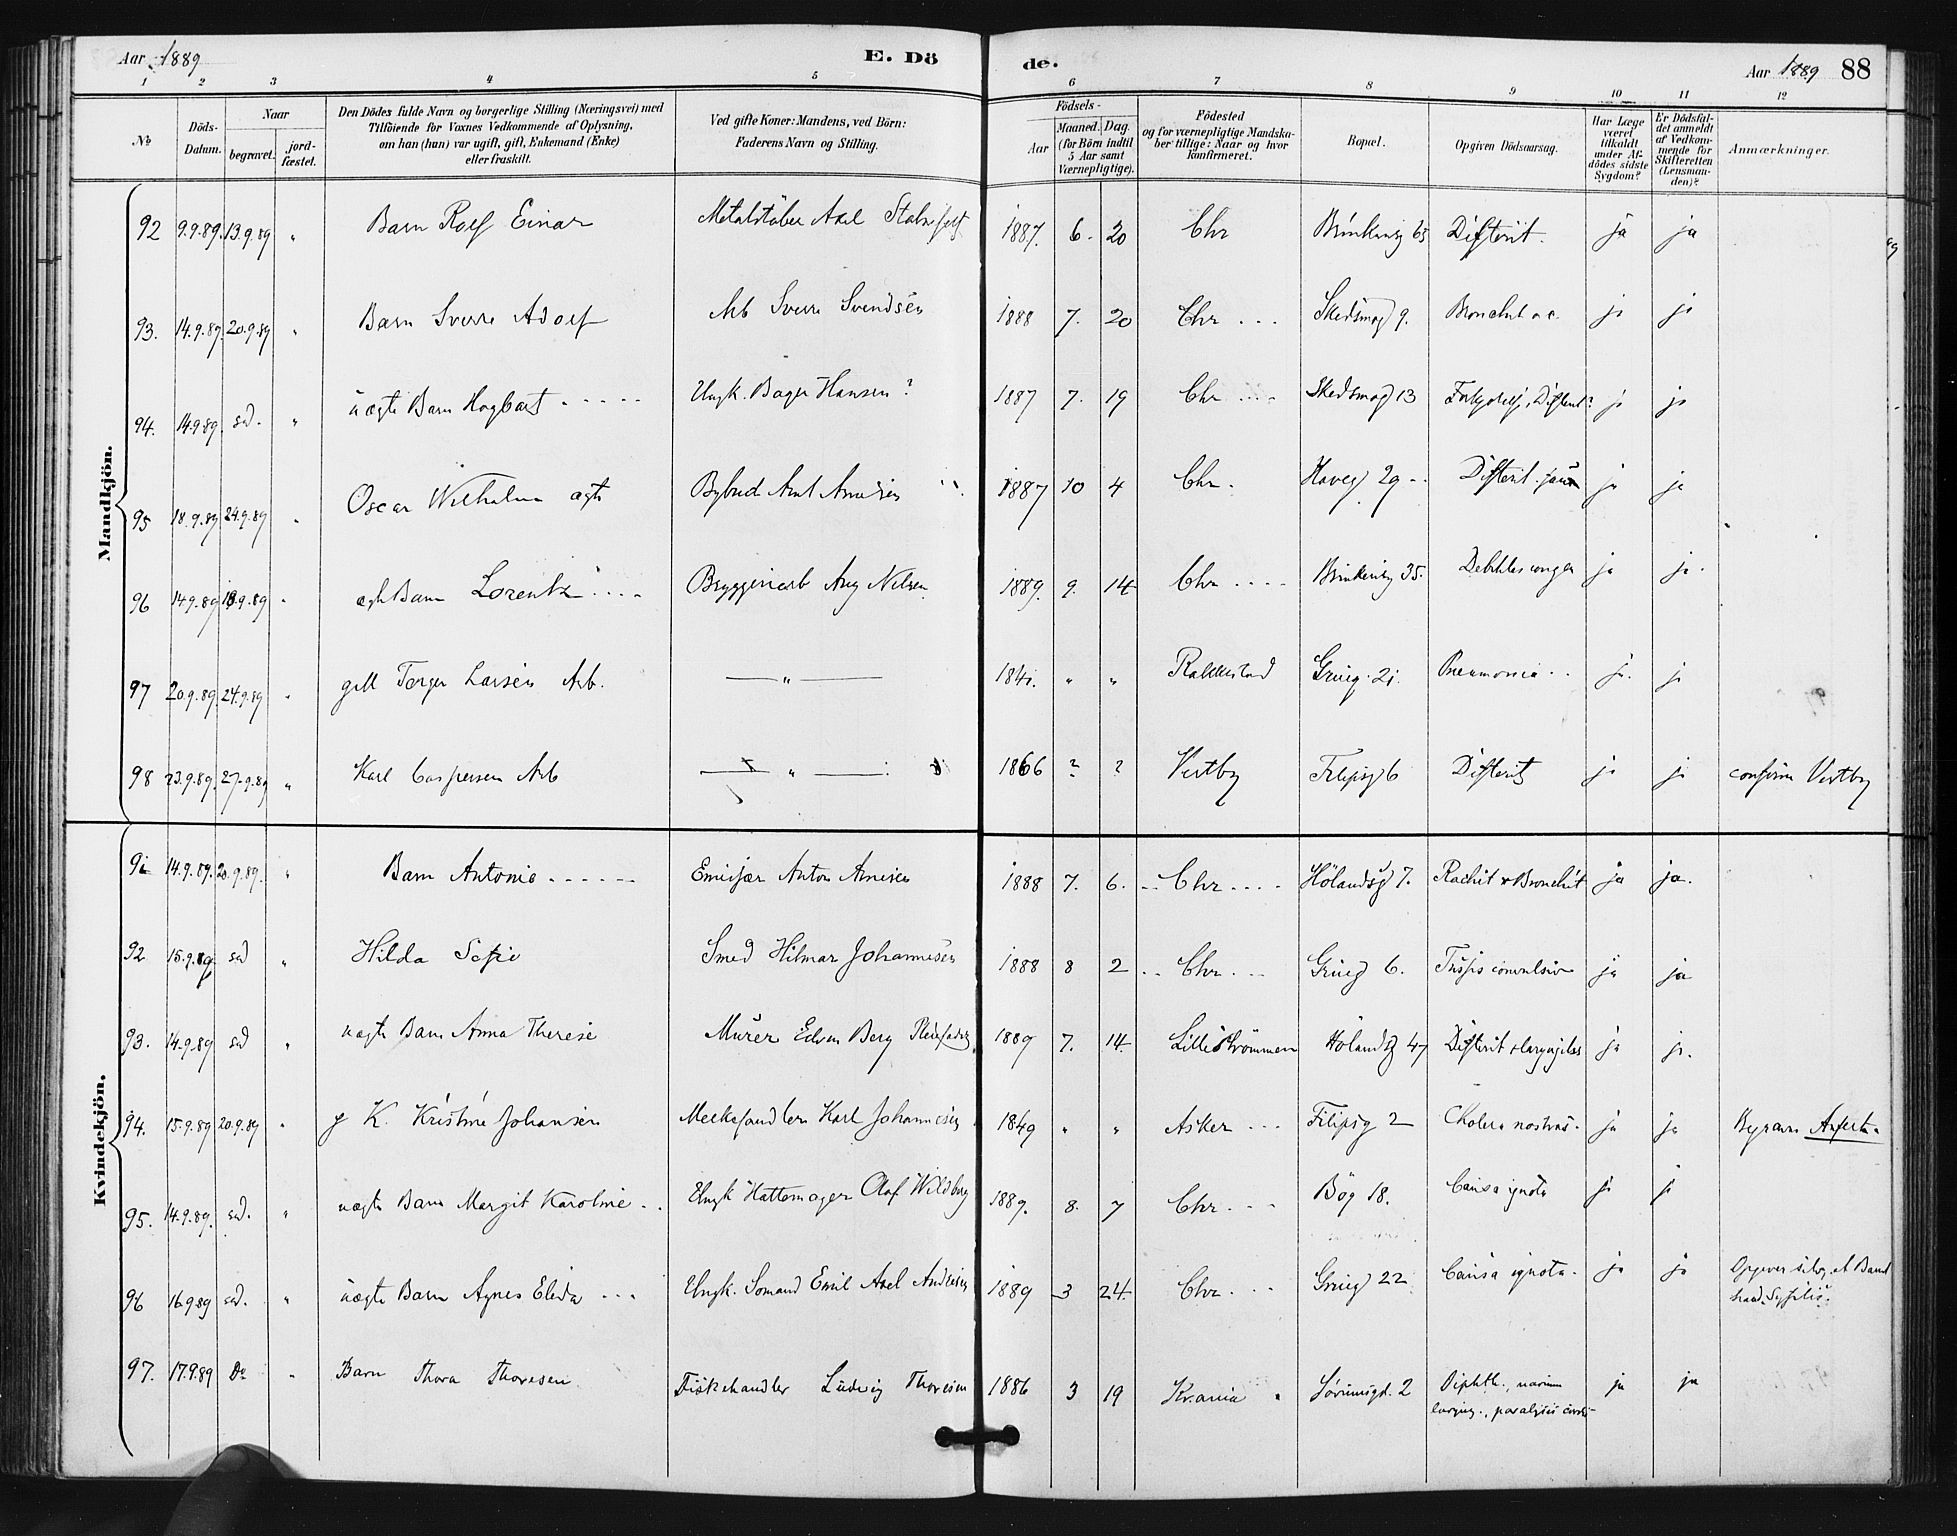 Aar 1889
E. Dö
de.
Aar 1889 88
1 2 3 4 5 6 7 8 9 10 11 12
No
Döds-Datum.
Naar
begravet.
jord-fæstet.
Den Dödes fulde Navn og borgerlige Stilling (Næringsvei) med
Tilföiende for Voxnes Vedkommende af Oplysning,
om han (hun) var ugift, gift, Enkemand (Enke)
eller fraskilt.
Ved gifte Koner: Mandens, ved Börn:
Faderens Navn og Stilling.
Födsels-
Aar
Maaned. Dag.
(for Börn indtil
5 Aar samt
Værnepligtige).
Födested
og for værnepligtige Mandska-
ber tillige: Naar og hvor
konfirmeret.
Bopæl.
Opgiven Dödsaarsag.
Har Læge
været
tilkaldt
under Af-
dödes sidste
Sygdom?
Er Dödsfal-
det anmeldt
af Vedkom-
mende for
Skifteretten
(Lensman-
den)?
Anmærkninger.
Mandkjön.
92 9.9.89. 13.9.89 " Barn Rolf Einar Metalstöber Axel 1887. 6. 20 Chr 65 Difterit. ja ja
93. 14.9.89. 20.9.89 " Barn Sverre Adolf Arb Sverre Svendsen 1888 7. 20 Chr ... Skedsmog 9. Bronchit ac. ja ja
94. 14.9.89. sd. " uægte Barn Hagbart Ungk. Bager Hansen? 1887 7. 19 Chr Skedsmog 13 Difterit? ja ja
95 18.9.89 24.9.89 " Oscar Wilhelm ægte Bybud Arnt 1887 10 4 Chr. Haveg 29 Difterit ja ja
96 14.9.89 18.9.89 " ægte Barn Lorentz Bryggeriarb Aug Nilsen 1889. 9. 14 Chr 35. ja ja.
97 20.9.89. 24.9.89 " gift Torger Larsen Arb. — " — 1841. " " Rakkestad Grueg. 21. Pneumonia ja. ja
98 23.9.89. 27.9.89 " Karl Caspersen Arb — " — 1866 ? ? Vestby Filipsg 6 Difterit ja ja confirm Vestby
Kvindekjön.
91 14.9.89. 20.9.89. " Barn Antonie Anton 1888 7. 6. Chr Hölandsg 7. Rachit & Bronchit ja ja.
92 15.9.89 sd " Hilda Sofie Smed Hilmar Johannesen 1888 8 2 Chr Grueg 6. Tussis convulsiv ja ja
93. 14.9.89 sd " uægte Barn Anna Therese Murer Edvin Berg Pleiefader 1889 7. 14. Lilleströmmen Hölandsg 47 Difterit & laryngitis ja ja.
94. 15.9.89 20.9.89 " g K. Kristine Johansen Melkehandler Karl Johannesen 1849 " " Asker Filipsg 2 Cholera nostras. ja ja
95. 14.9.89. sd. " uægte Barn Margit Karoline Ungk Hattemager Olaf Wildberg 1889. 8. 7 Chr. Bög 18. Causa ignota ja ja
96 16.9.89 sd. " uægte Barn Agnes Elida Ungk. Sömand Emil Axel Andresen 1889 3 24. Chr. Grueg 22 Causa ignota. ja ja at Barnet
havde Syfilis.
97. 17.9.89 Do " Barn Thora Thoresen Fiskehandler Ludvig Thoresen 1886 3 19 Kr.ania Sörumsgd. 2 Diphth., narium
laryng., paralysis cordis ja ja